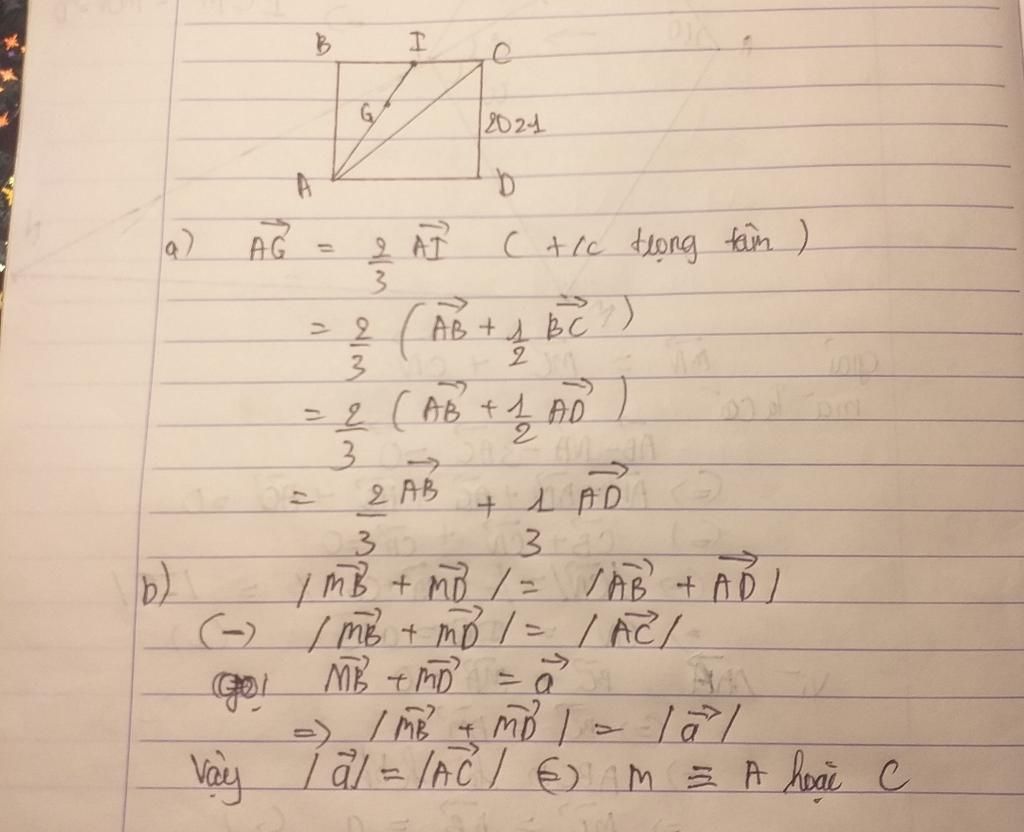 B I C
G
2021
A D
a) \overrightarrow{AG} = \frac{2}{3} \overrightarrow{AI} ( t/c trọng tâm )
= \frac{2}{3} ( \overrightarrow{AB} + \frac{1}{2} \overrightarrow{BC} )
= \frac{2}{3} ( \overrightarrow{AB} + \frac{1}{2} \overrightarrow{AD} )
= \frac{2}{3} \overrightarrow{AB} + \frac{1}{3} \overrightarrow{AD}
b) | \overrightarrow{MB} + \overrightarrow{MD} | = | \overrightarrow{AB} + \overrightarrow{AD} |
(-) | \overrightarrow{MB} + \overrightarrow{MD} | = | \overrightarrow{AC} |
Gọi \overrightarrow{MB} + \overrightarrow{MD} = \overrightarrow{a}
=> | \overrightarrow{MB} + \overrightarrow{MD} | = | \overrightarrow{a} |
Vậy | \overrightarrow{a} | = | \overrightarrow{AC} | (=) M ≡ A hoặc C